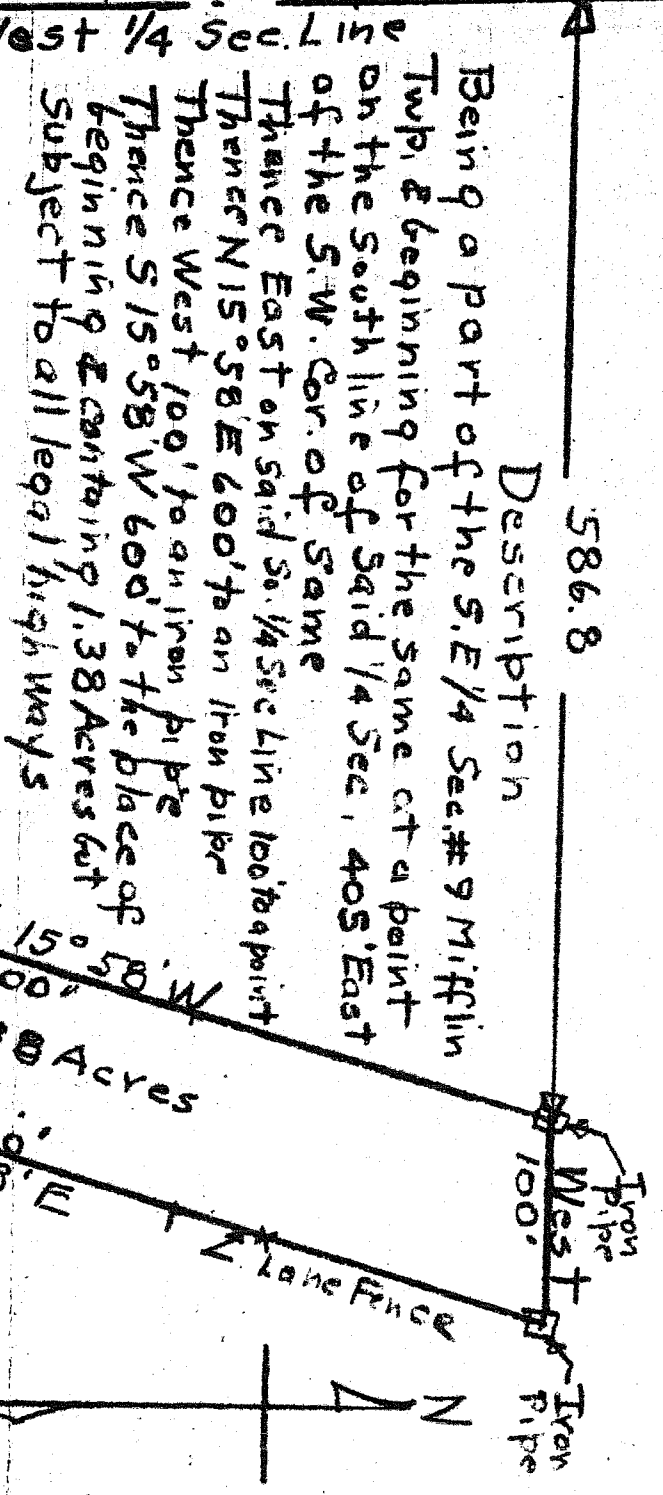 West 1/4 Sec. Line
586.8
Description
Being a part of the S.E 1/4 Sec. # 9 Mifflin
Twp. & beginning for the same at a point
on the South line of said 1/4 Sec, 405' East
of the S.W. Cor. of same
Thence East on said So. 1/4 Sec Line 100' to a point
Thence N 15° 58' E 600' to an iron pipe
Thence West 100' to an iron pipe
Thence S 15° 58' W 600' to the place of
beginning & containing 1.38 Acres but
Subject to all legal high ways
Iron
pipe
West
100'
Iron
Pipe
15° 58' W
00'
8 Acres
0'
8' E
Lane Fence
N